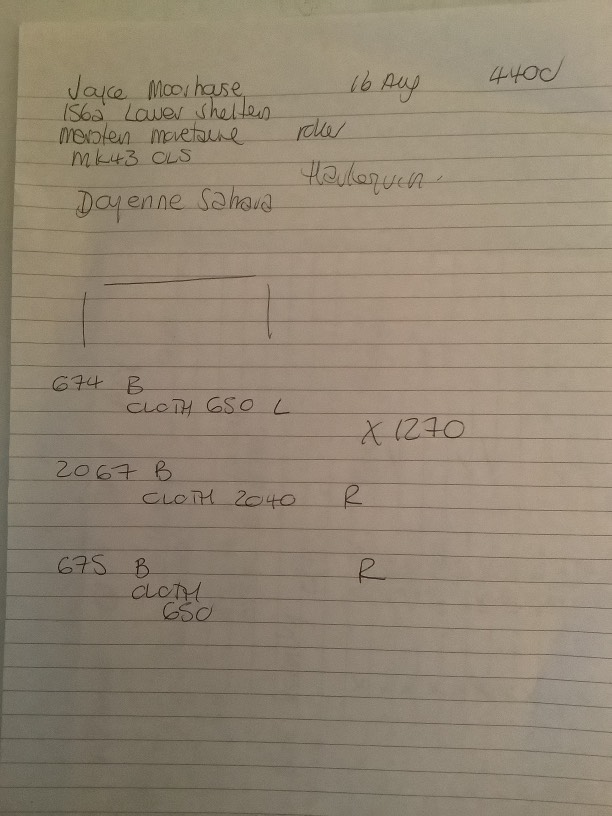 Joyce Moorhase 16 Aug 440d
156a Lower Shelten
morsten moretaine roller
MK43 OLS
Harlequin
Dayenne Sahara
674 B
CLOTH 650 L
X 1270
2067 B
CLOTH 2040 R
675 B R
CLOTH
650